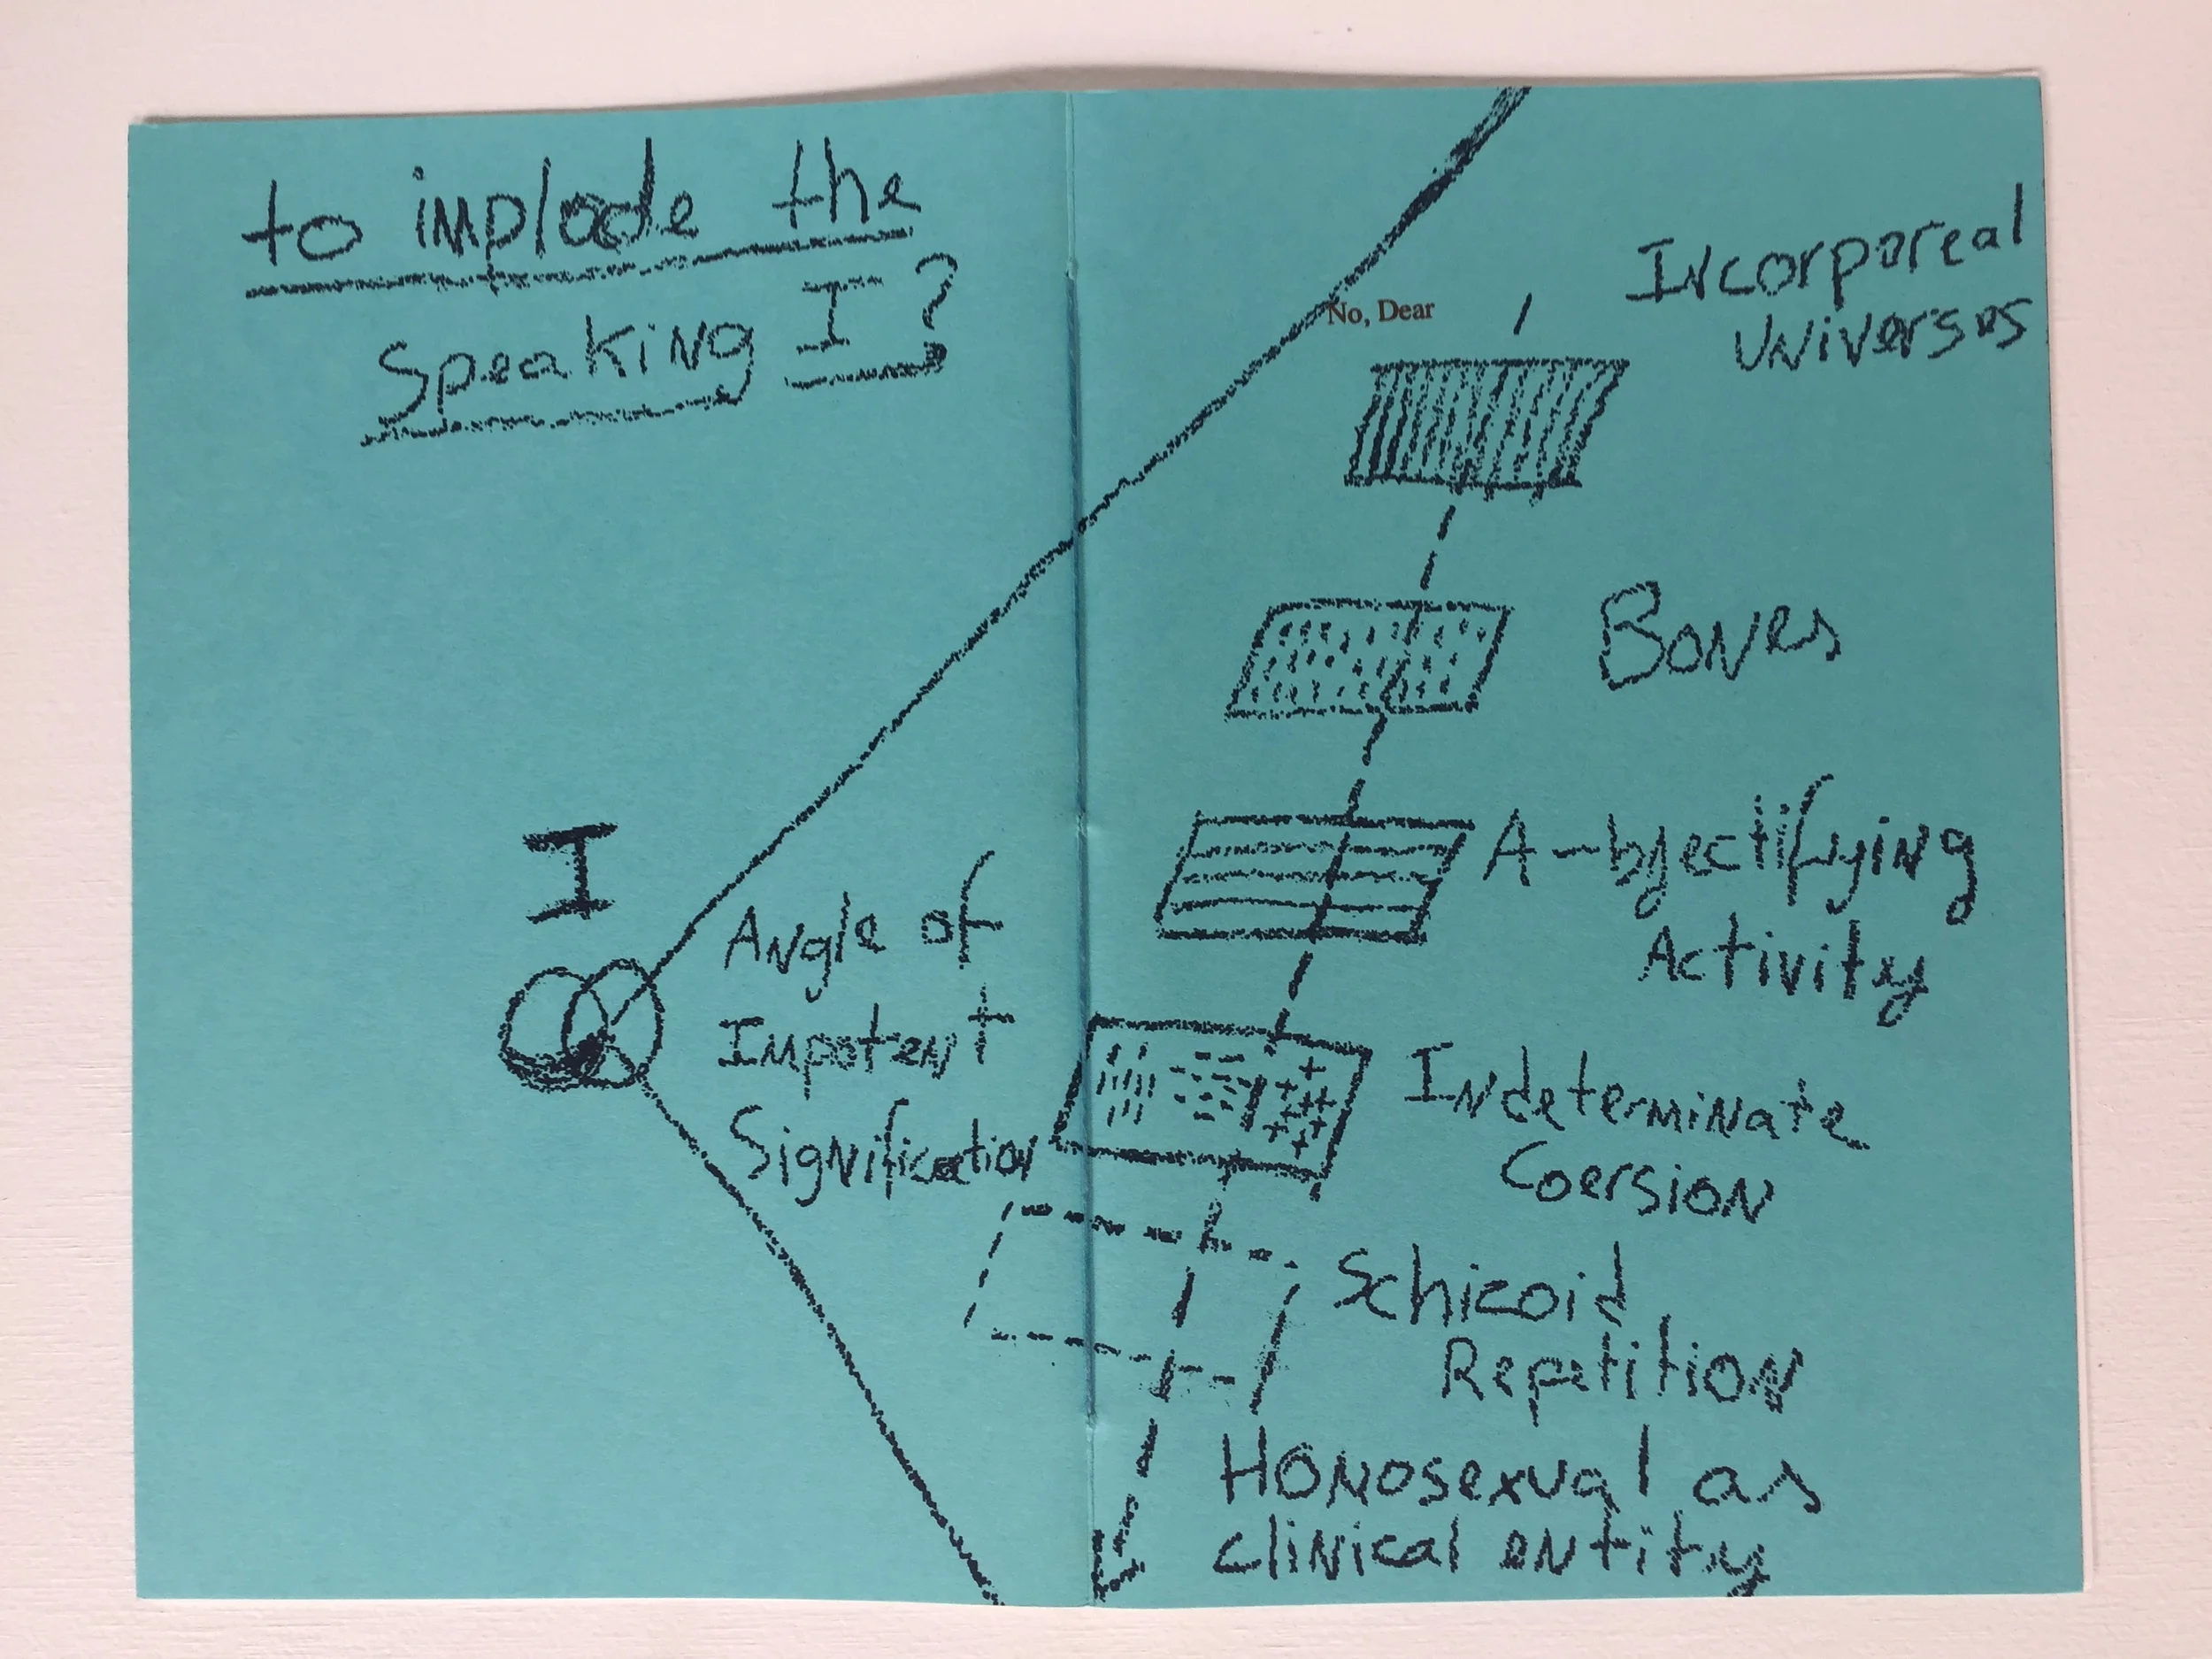 to implode the
Speaking I?
I
Angle of
Impotent
Signification
No, Dear
Incorporeal
Universes
Bones
A-bjectifying
Activity
Indeterminate
Coersion
Schizoid
Repetition
Homosexual as
clinical entity